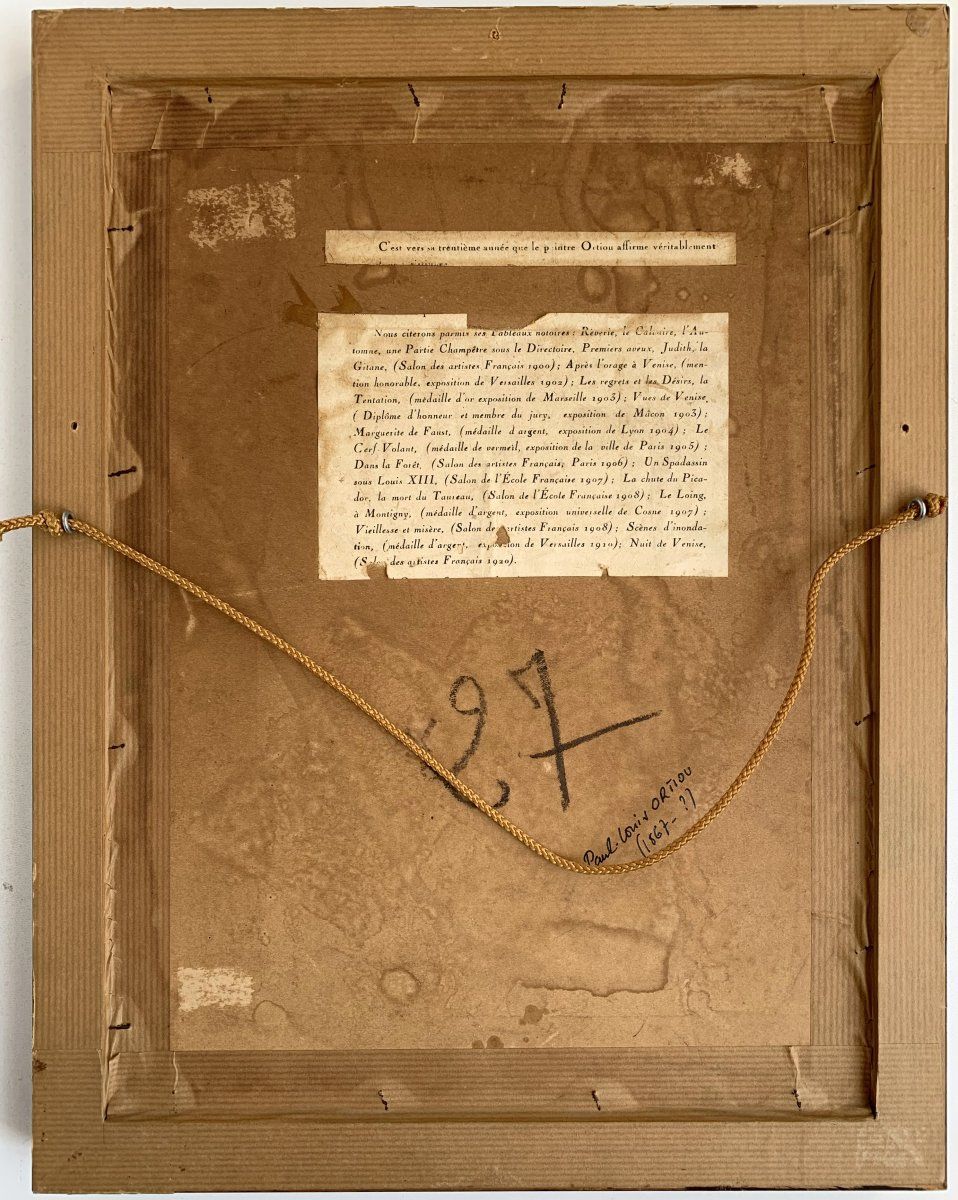 C'est vers sa trentième année que le peintre Ortiou affirme véritablement
Nous citerons parmis ses Tableaux notoires : Rêverie, le Calvaire, l'Au-
tomne, une Partie Champêtre sous le Directoire, Premiers aveux, Judith, la
Gitane, (Salon des artistes Français 1900) ; Après l'orage à Venise, (men-
tion honorable, exposition de Versailles 1902) ; Les regrets et les Désirs, la
Tentation, (médaille d'or exposition de Marseille 1903) ; Vues de Venise,
( Diplôme d'honneur et membre du jury, exposition de Mâcon 1903) ;
Marguerite de Faust, (médaille d'argent, exposition de Lyon 1904) ; Le
Cerf-Volant, (médaille de vermeil, exposition de la ville de Paris 1905) ;
Dans la Forêt, (Salon des artistes Français, Paris 1906) ; Un Spadassin
sous Louis XIII, (Salon de l'École Française 1907) ; La chute du Pica-
dor, la mort du Taureau, (Salon de l'École Française 1908) ; Le Loing,
à Montigny, (médaille d'argent, exposition universelle de Cosne 1907) ;
Vieillesse et misère, (Salon des artistes Français 1908) ; Scènes d'inonda-
tion, (médaille d'argent, exposition de Versailles 1910) ; Nuit de Venise,
(Salon des artistes Français 1920).
27
Paul-Louis ORTIOU
(1867- ?)